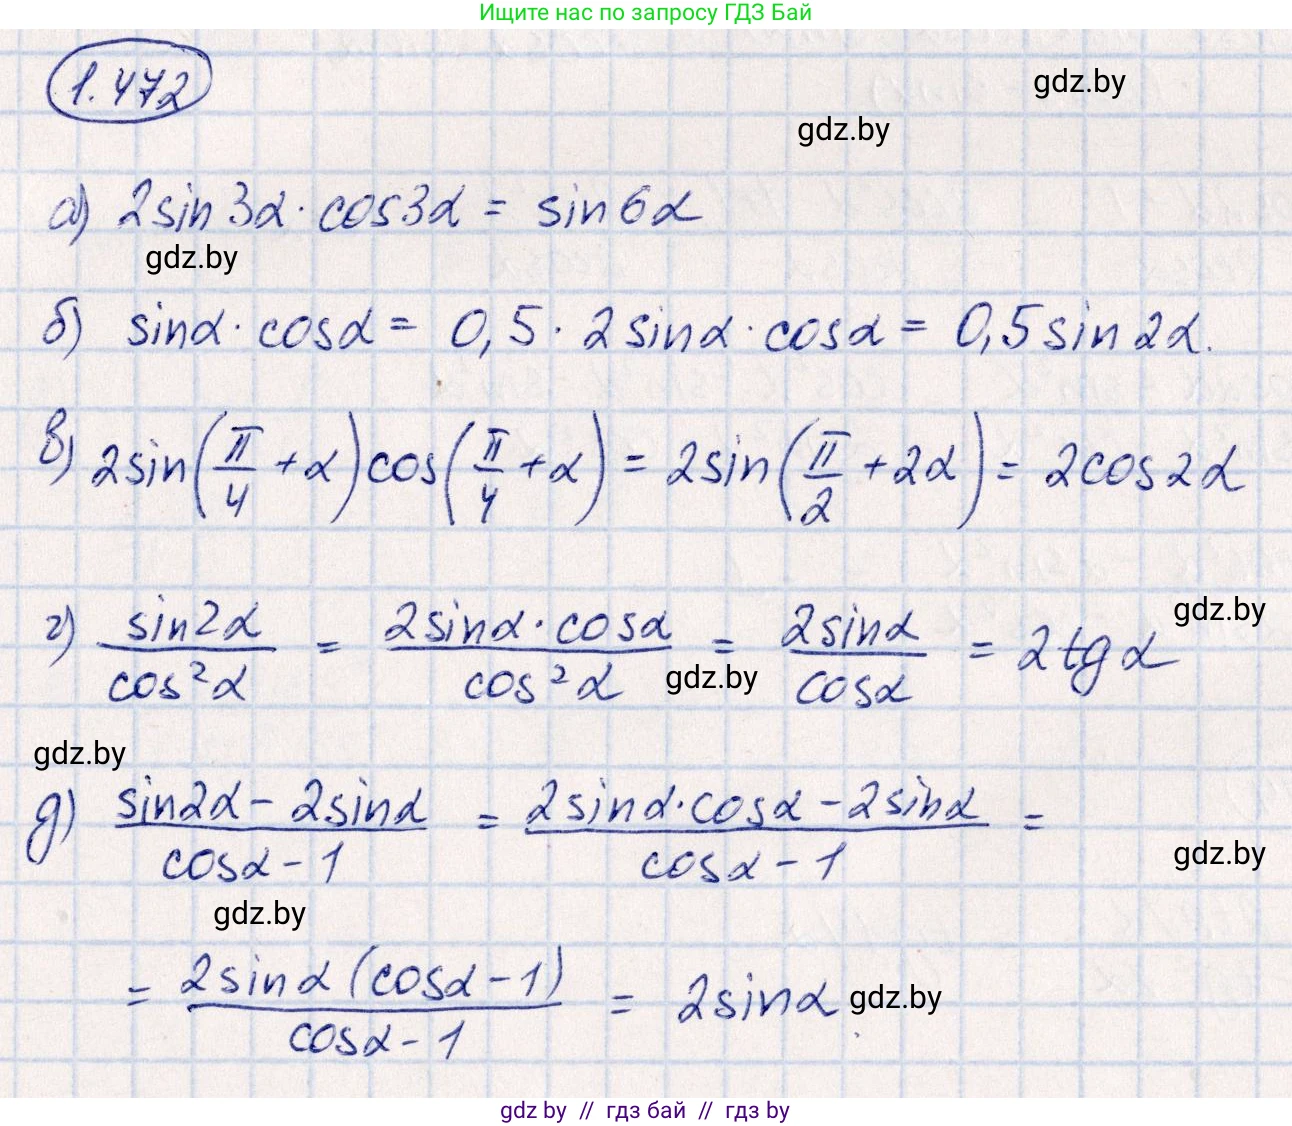 Ищите нас по запросу ГДЗ Бай
1.472
gdz.by
gdz.by
а) 2sin3α · cos3α = sin6α
gdz.by
б) sinα · cosα = 0,5 · 2sinα · cosα = 0,5sin2α.
в) 2sin(π/4 + α)cos(π/4 + α) = 2sin(π/2 + 2α) = 2cos2α
gdz.by
г) sin2α/cos²α = 2sinα · cosα/cos²α = 2sinα/cosα = 2tgα
gdz.by
gdz.by
д) (sin2α - 2sinα)/(cosα - 1) = (2sinα · cosα - 2sinα)/(cosα - 1) =
gdz.by
gdz.by
= 2sinα(cosα - 1)/(cosα - 1) = 2sinα
gdz.by
gdz by // гдз бай // гдз by